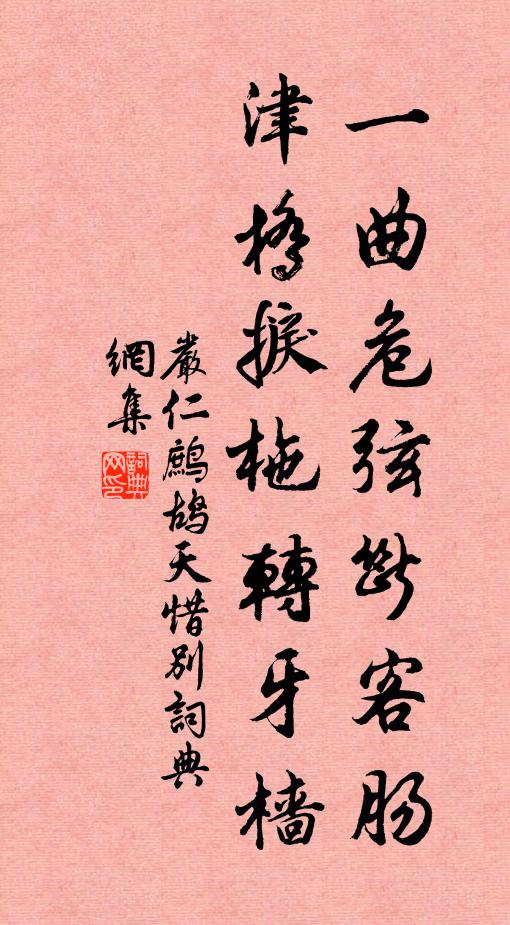 一曲危弦斷客腸
津橋捩柂轉牙檣
嚴仁鷓鴣天惜別詞典
網集
詞典網印